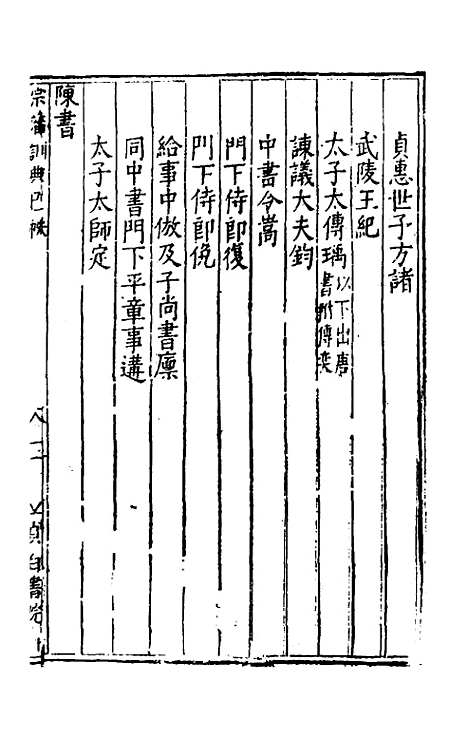 貞惠世子方諸
武陵王紀
太子太傅瑀以下出唐書附傳奕
諫議大夫鈞
中書令嵩
門下侍郎復
門下侍郎俛
給事中倣及子尚書廩
同中書門下平章事遘
太子太師定
陳書
宗藩訓典